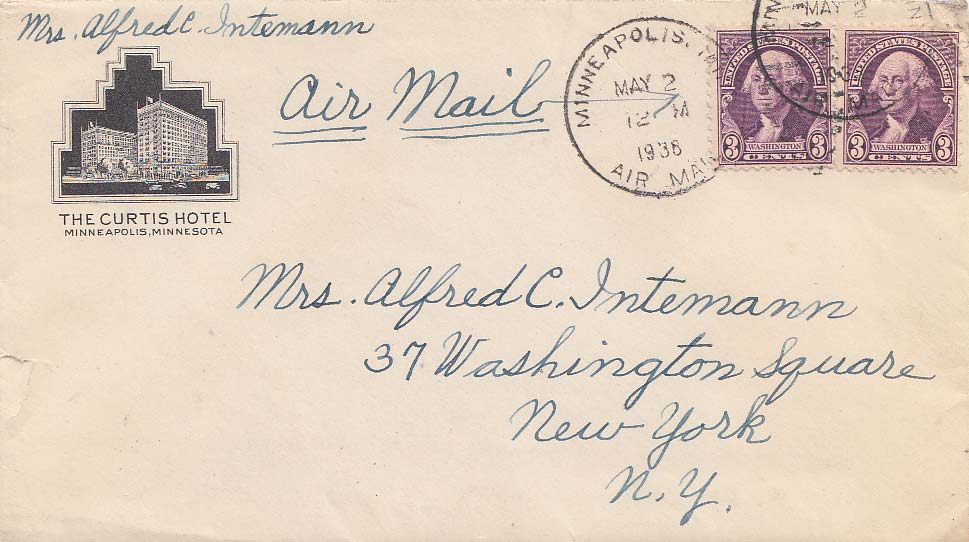 Mrs. Alfred C. Intemann
THE CURTIS HOTEL
MINNEAPOLIS, MINNESOTA
Air Mail
MINNEAPOLIS,
MAY 2
12 M
1938
AIR MAIL
MAY 2
UNITED STATES POSTAGE
3 WASHINGTON 3
CENTS
UNITED STATES POSTAGE
3 WASHINGTON 3
CENTS
Mrs. Alfred C. Intemann
37 Washington Square
New York
N.Y.